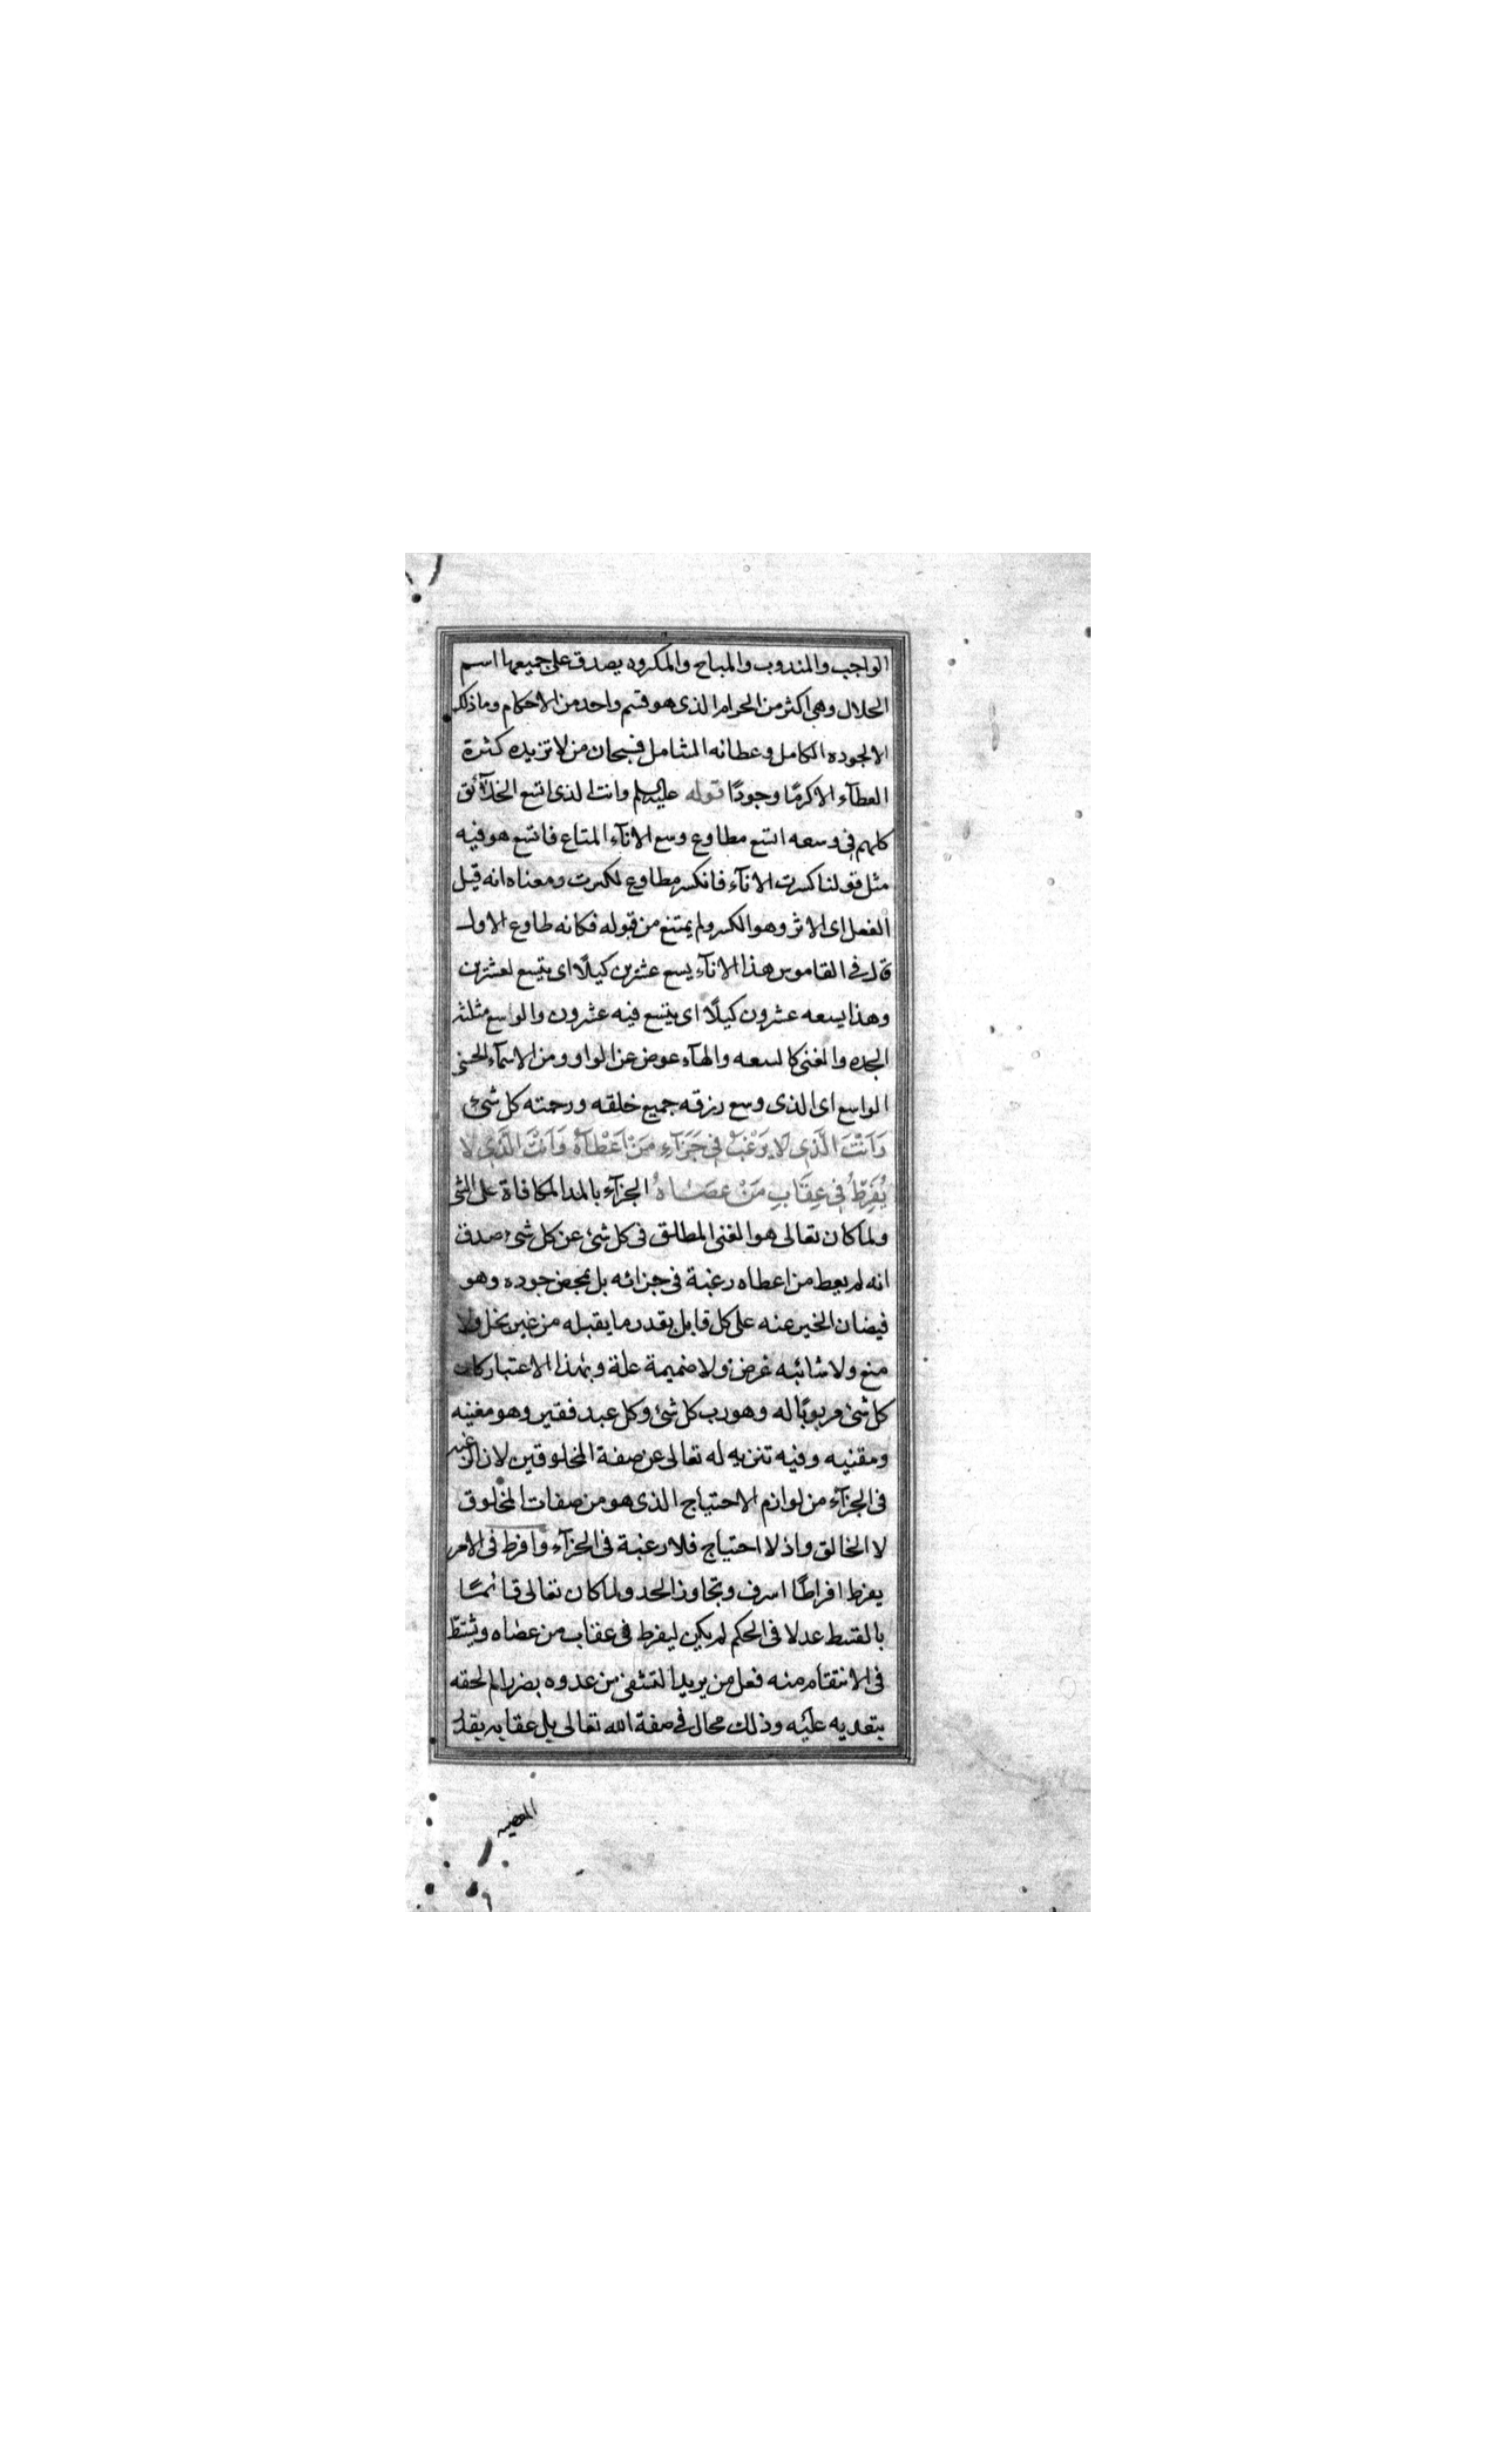 الواجب والمندوب والمباح والمكروه يصدق على جميعها اسم
الحلال وهى اكثر من الحرام الذى هو قسم واحد من الاحكام وما ذلك
الا لجوده الكامل وعطائه الشامل فسبحان من لا تزيده كثرة
العطآء الا كرمًا وجودًا قوله عليه السلم وانت الذى اتسع الخلآئق
كلهم فى وسعه اتسع مطاوع وسع الانآء المتاع فاتسع هو فيه
مثل قولنا كسرت الانآء فانكسر مطاوع لكسرت ومعناه انه قبل
الفعل اى الاثر وهو الكسر ولم يمتنع من قبوله فكانه طاوع الاول
قال فى القاموس هذا الانآء يسع عشرين كيلًا اى يتسع لعشرين
وهذا يسعه عشرون كيلًا اى يتسع فيه عشرون والواسع مثلثه
الجده والغنى كالسعه والهآء عوض عن الواو ومن الاسمآء الحسنى
الواسع اى الذى وسع رزقه جميع خلقه ورحمته كل شىء
وَاَنْتَ الَّذِى لَا يَرْغَبُ فِى جَزَآءِ مَنْ اَعْطَاهُ وَاَنْتَ الَّذِى لا
يُفَرِطُ فِى عِقَابِ مَنْ عَصَاهُ الجزآء بالمد المكافاة على الشى
ولما كان تعالى هو الغنى المطلق فى كل شئ عن كل شئ صدق
انه لم يعط من اعطاه رغبة فى جزائه بل بمحض جوده وهو
فيضان الخير عنه على كل قابل بقدر ما يقبله من غير بخل ولا
منع ولا شائبه غرض ولا ضميمة علة وبهذا الاعتبار كان
كل شئ مربوبًا له وهو رب كل شئ وكل عبد فقير وهو مغنيه
ومقنيه وفيه تنزيه له تعالى عن صفة المخلوقين لان الرغبه
فى الجزآء من لوازم الاحتياج الذى هو من صفات المخلوق
لا الخالق واذ لا احتياج فلا رغبة فى الجزآء وافرط فى الامر
يفرط افراطًا اسرف وتجاوز الحد ولما كان تعالى قائمًا
بالقسط عدلا فى الحكم لم يكن ليفرط فى عقاب من عصاه ويشتطّ
فى الانتقام منه فعل من يريد التشفى من عدوه بضرر الم لحقه
بتعديه عليه وذلك محال فى صفة الله تعالى بل عقابه بقدر
المعصيه